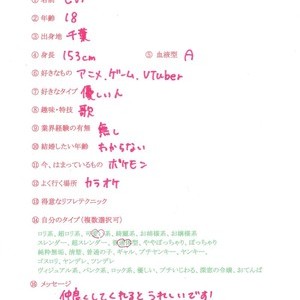 ② 年齢 18
③ 出身地 千葉
④ 身長 153cm ⑤ 血液型 A
⑥ 好きなもの アニメ、ゲーム、VTuber
⑦ 好きなタイプ 優しい人
⑧ 趣味・特技 歌
⑨ 業界経験の有無 無し
⑩ 結婚したい年齢 わからない
⑪ 今、はまっているもの ポケモン
⑫ よく行く場所 カラオケ
⑬ 得意なリフレテクニック
⑭ 自分のタイプ（複数選択可）
ロリ系、超ロリ系、 系、綺麗系、お姉様系、お嬢様系
スレンダー、超スレンダー、 、ややぽっちゃり、ぽっちゃり
純粋無垢、清楚、普通の子、ギャル、プチヤンキー、ヤンキー、
ゴスロリ、ヤンデレ、ツンデレ
ヴィジュアル系、パンク系、ロック系、優しい、 、深窓の令嬢、おてんば
⑮ メッセージ
仲良くしてくれるとうれしいです!